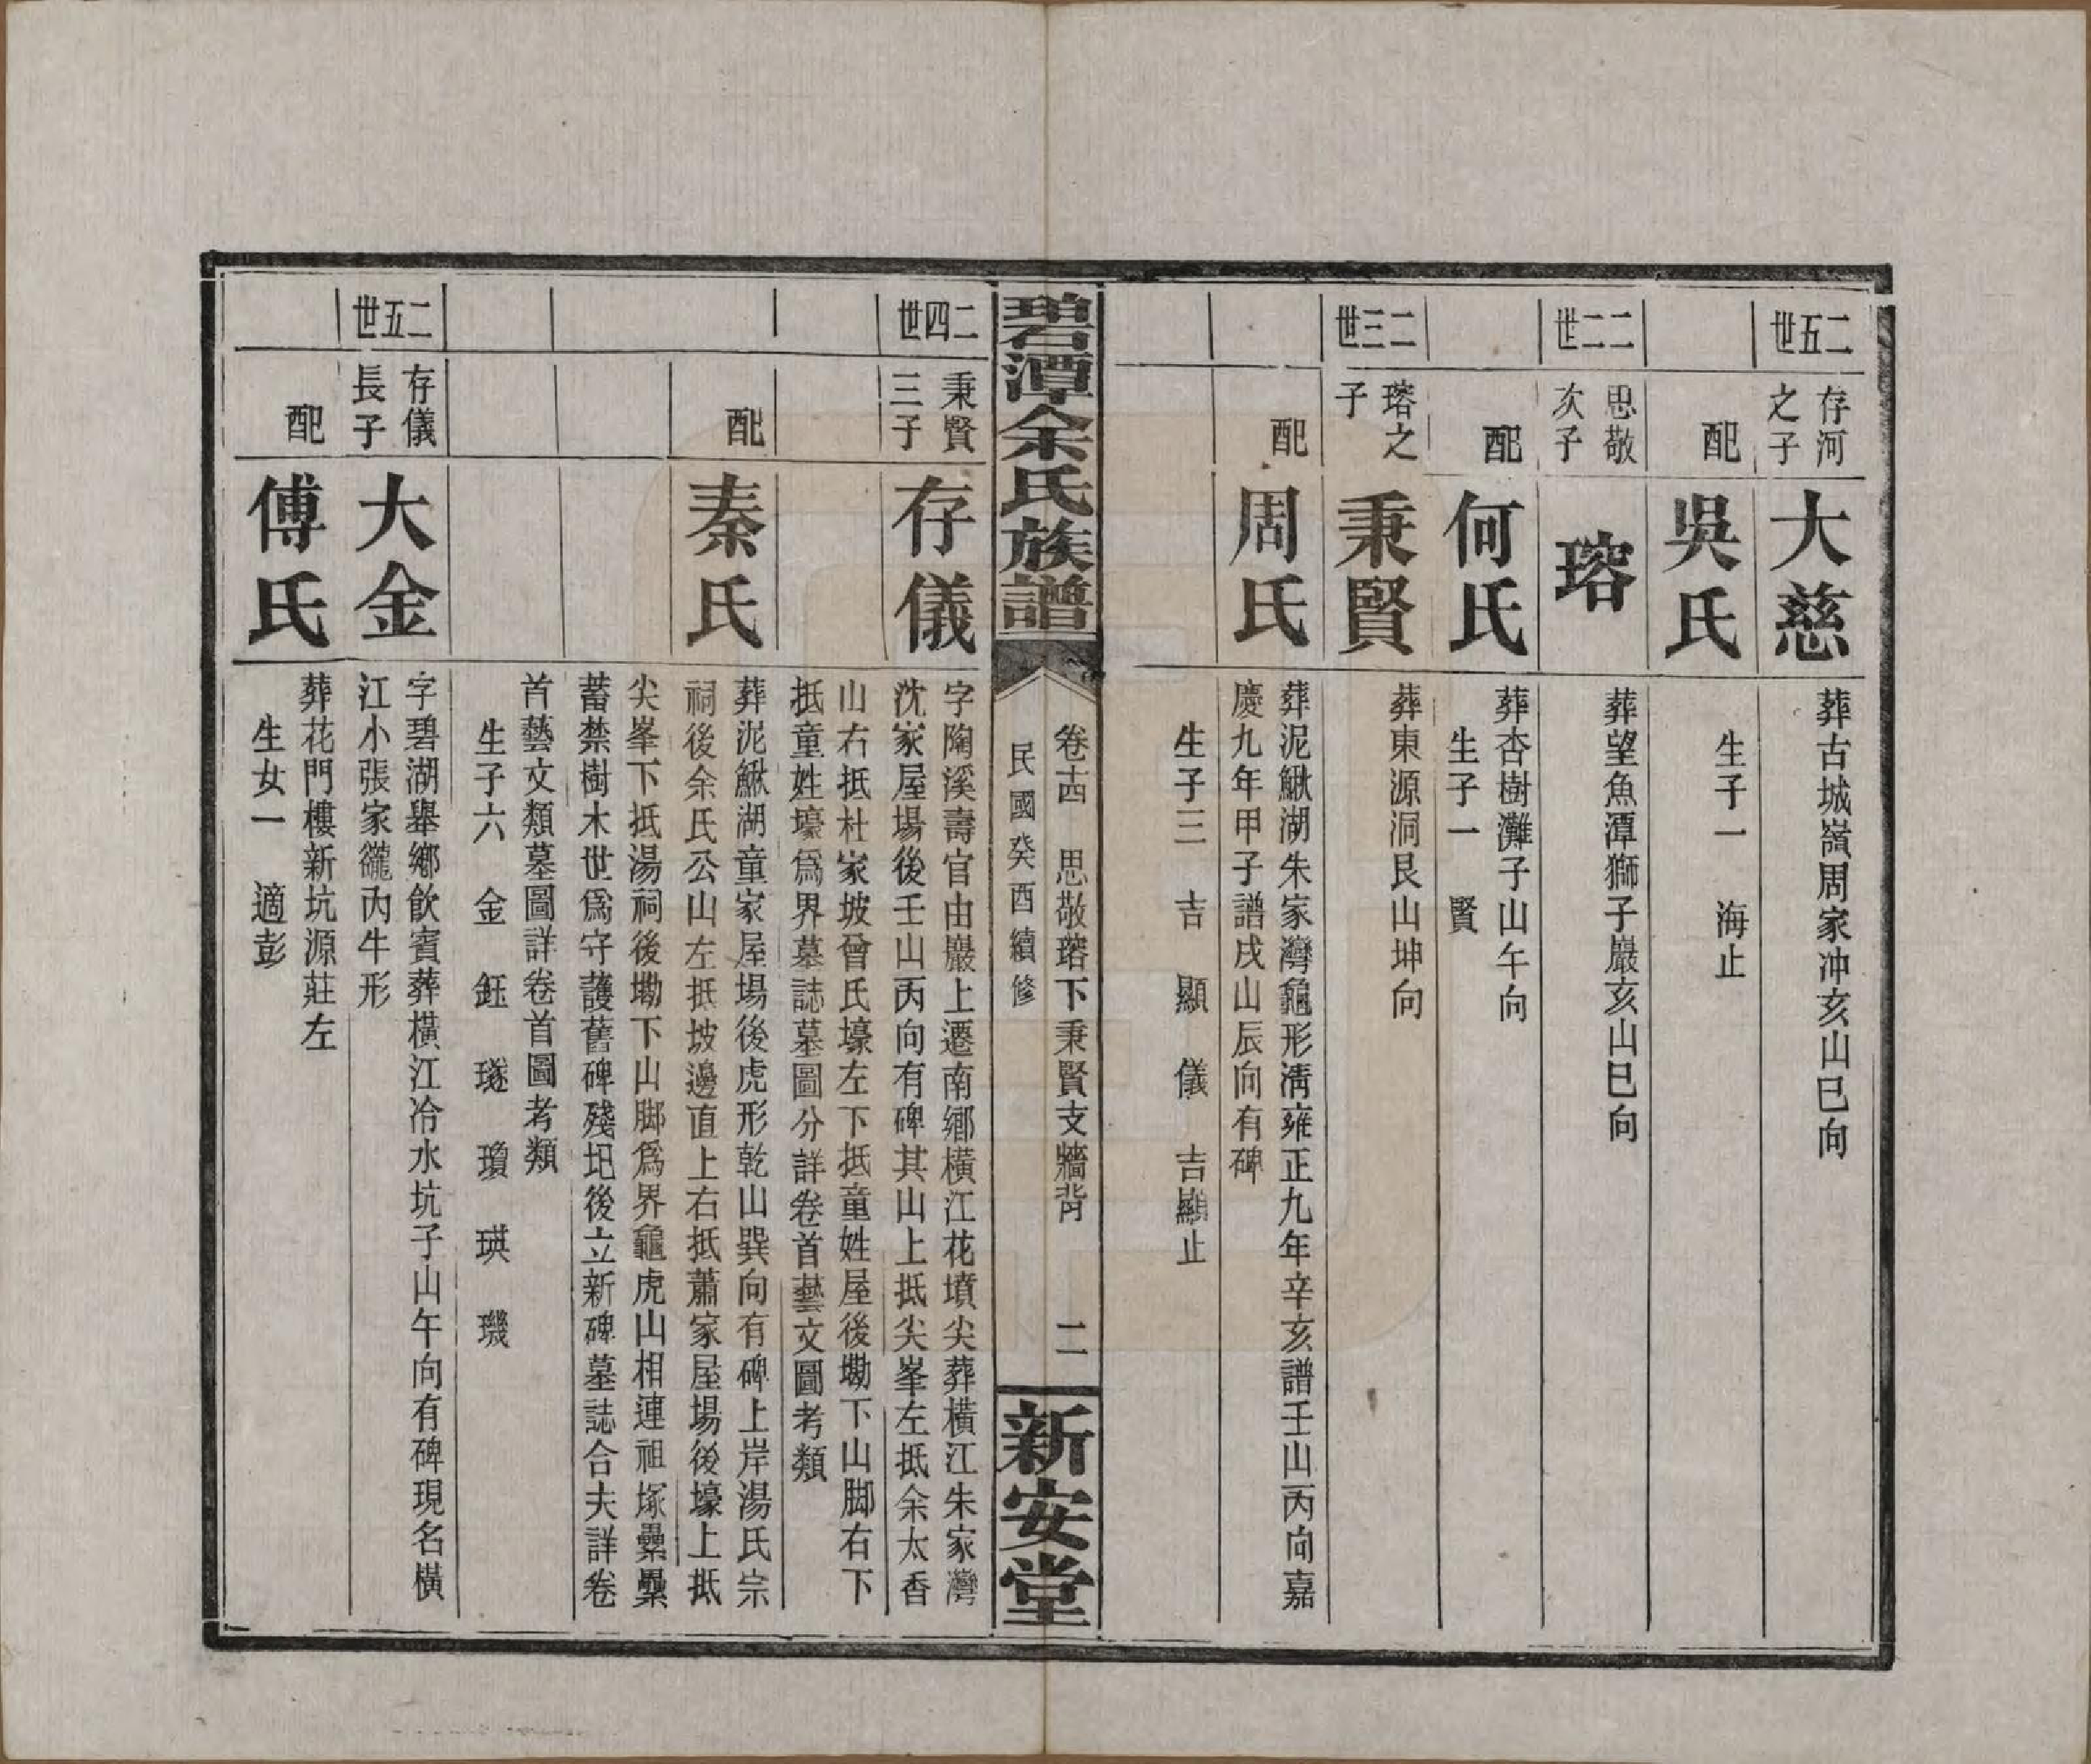 二五世
存河
之子
大慈
葬古城嶺周家冲亥山巳向
配
吳氏
生子一　海止
二二世
思敬
次子
瑢
葬望魚潭獅子巖亥山巳向
配
何氏
葬杏樹灘子山午向
生子一　賢
二三世
瑢之
子
秉賢
葬東源洞艮山坤向
配
周氏
葬泥鰍湖朱家灣龜形淸雍正九年辛亥譜壬山丙向嘉
慶九年甲子譜戌山辰向有碑
生子三　吉　顯　儀　吉顯止
碧潭余氏族譜
卷十四　思敬瑢下秉賢支牆背　二
民國癸酉續修
新安堂
二四世
秉賢
三子
存儀
字陶溪壽官由巖上遷南鄉橫江花墳尖葬橫江朱家灣
沈家屋場後壬山丙向有碑其山上抵尖峯左抵余太香
山右抵杜家坡曾氏壕左下抵童姓屋後墈下山脚右下
抵童姓壕爲界墓誌墓圖分詳卷首藝文圖考類
配
秦氏
葬泥鰍湖童家屋場後虎形乾山巽向有碑上岸湯氏宗
祠後余氏公山左抵坡邊直上右抵蕭家屋場後壕上抵
尖峯下抵湯祠後墈下山脚爲界龜虎山相連祖塚纍纍
蓄禁樹木世爲守護舊碑殘圯後立新碑墓誌合夫詳卷
首藝文類墓圖詳卷首圖考類
生子六　金　鈺　璲　瓊　瑛　璣
二五世
存儀
長子
大金
字碧湖舉鄉飲賓葬橫江冷水坑子山午向有碑現名橫
江小張家衕內牛形
配
傅氏
葬花門樓新坑源莊左
生女一　適彭